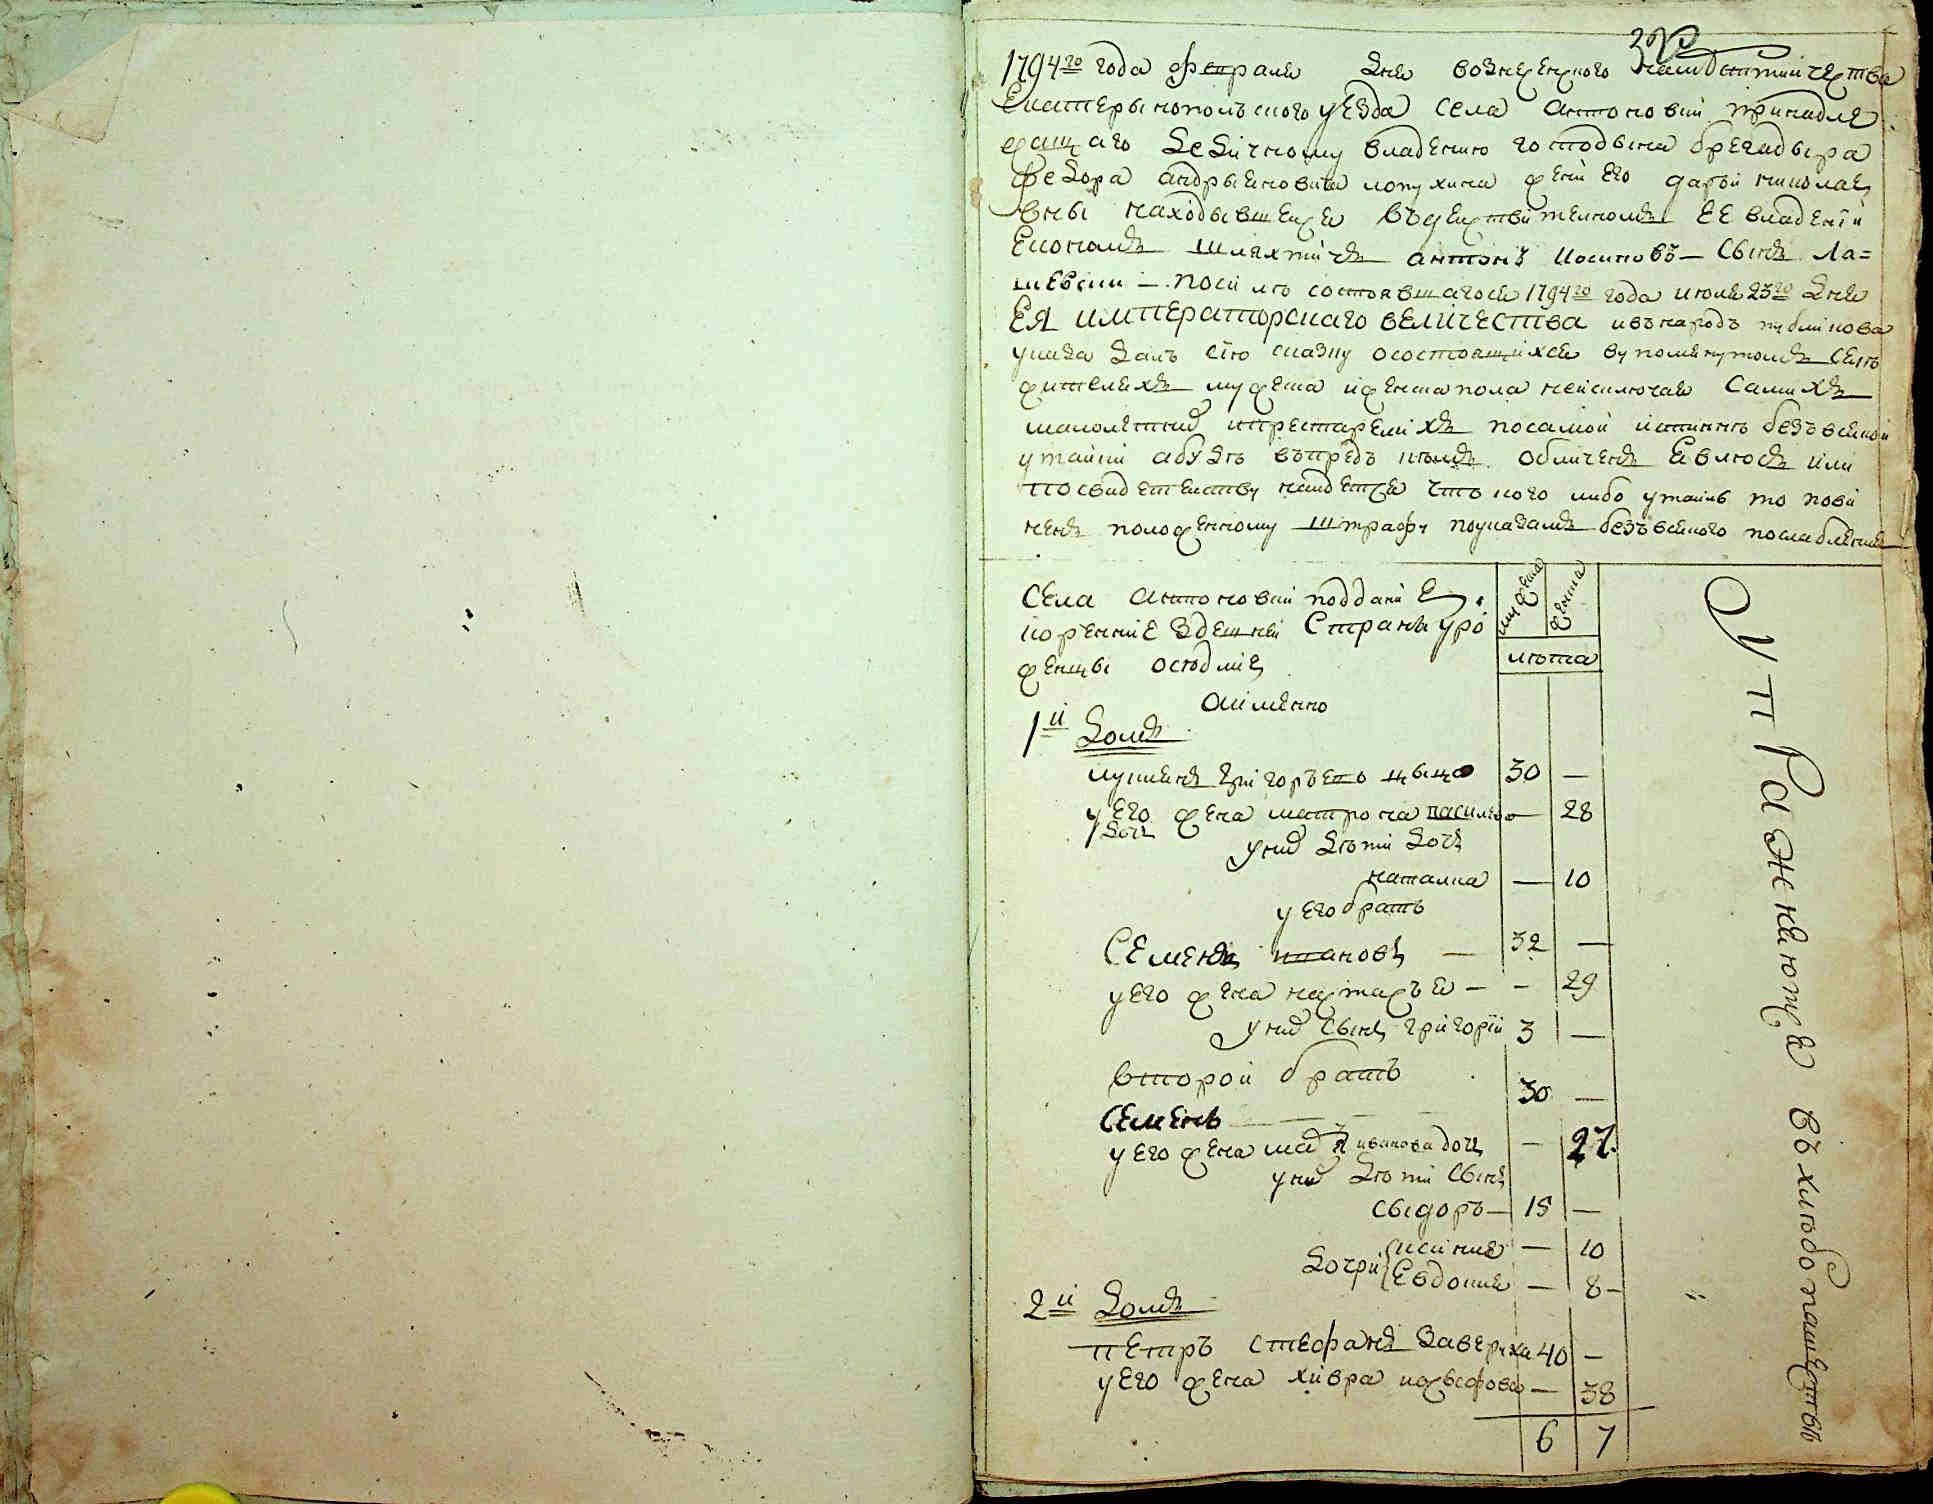 1794го года февраля дня вознесенского наместничества
Екатеринопольского уезда села антоновки принадле
жащаго вечному владению господина брегадыра
федора андрыяновича лопухина жены его дарьи николаев
вны находывшейся въ действителномъ ее владении
Економъ шляхтичъ антонъ иосиповъ — сынъ Ла=
шевски — посилъ состоявшагося 1794го года июня 23го дня
ЕЯ императорскаго величества и въ народъ публикова
указа далъ сию сказку о состоящихся в упомянутомъ селе
жителяхъ мужеска и женска пола не исключая самихъ
малолетных и престарелихъ по самой истинне безъ всякой
утайки а буде въпредъ кемъ обличенъ явлюсь или
по свидетелству найдется что кого либо утаилъ то пови
ненъ положенному штрафу по указамъ безъ всякого послабления
села антоновки поддание
коренние здешней страны уро
женцы оседлие
мужеска
женска
лета
а именно
1й домъ
лукиянъ григорьево
30 —
у его жена матрона — 28
дочь
у них дети дочь
наталка — 10
у его братъ
Семенъ ивановъ — 32 —
у его жена настасъя — — 29
у них сынъ григорий 3 —
второй братъ
Семенъ 30 —
у его жена иванова дочь — 27
у них дети сынъ
сыдоръ — 15 —
дочри ксиния — 10
Евдокия — 8 —
2й домъ
петръ стефанъ Заверуха 40 —
у его жена хивра иосыфова — 38
6 7
Упражняются въ хлебопашестве